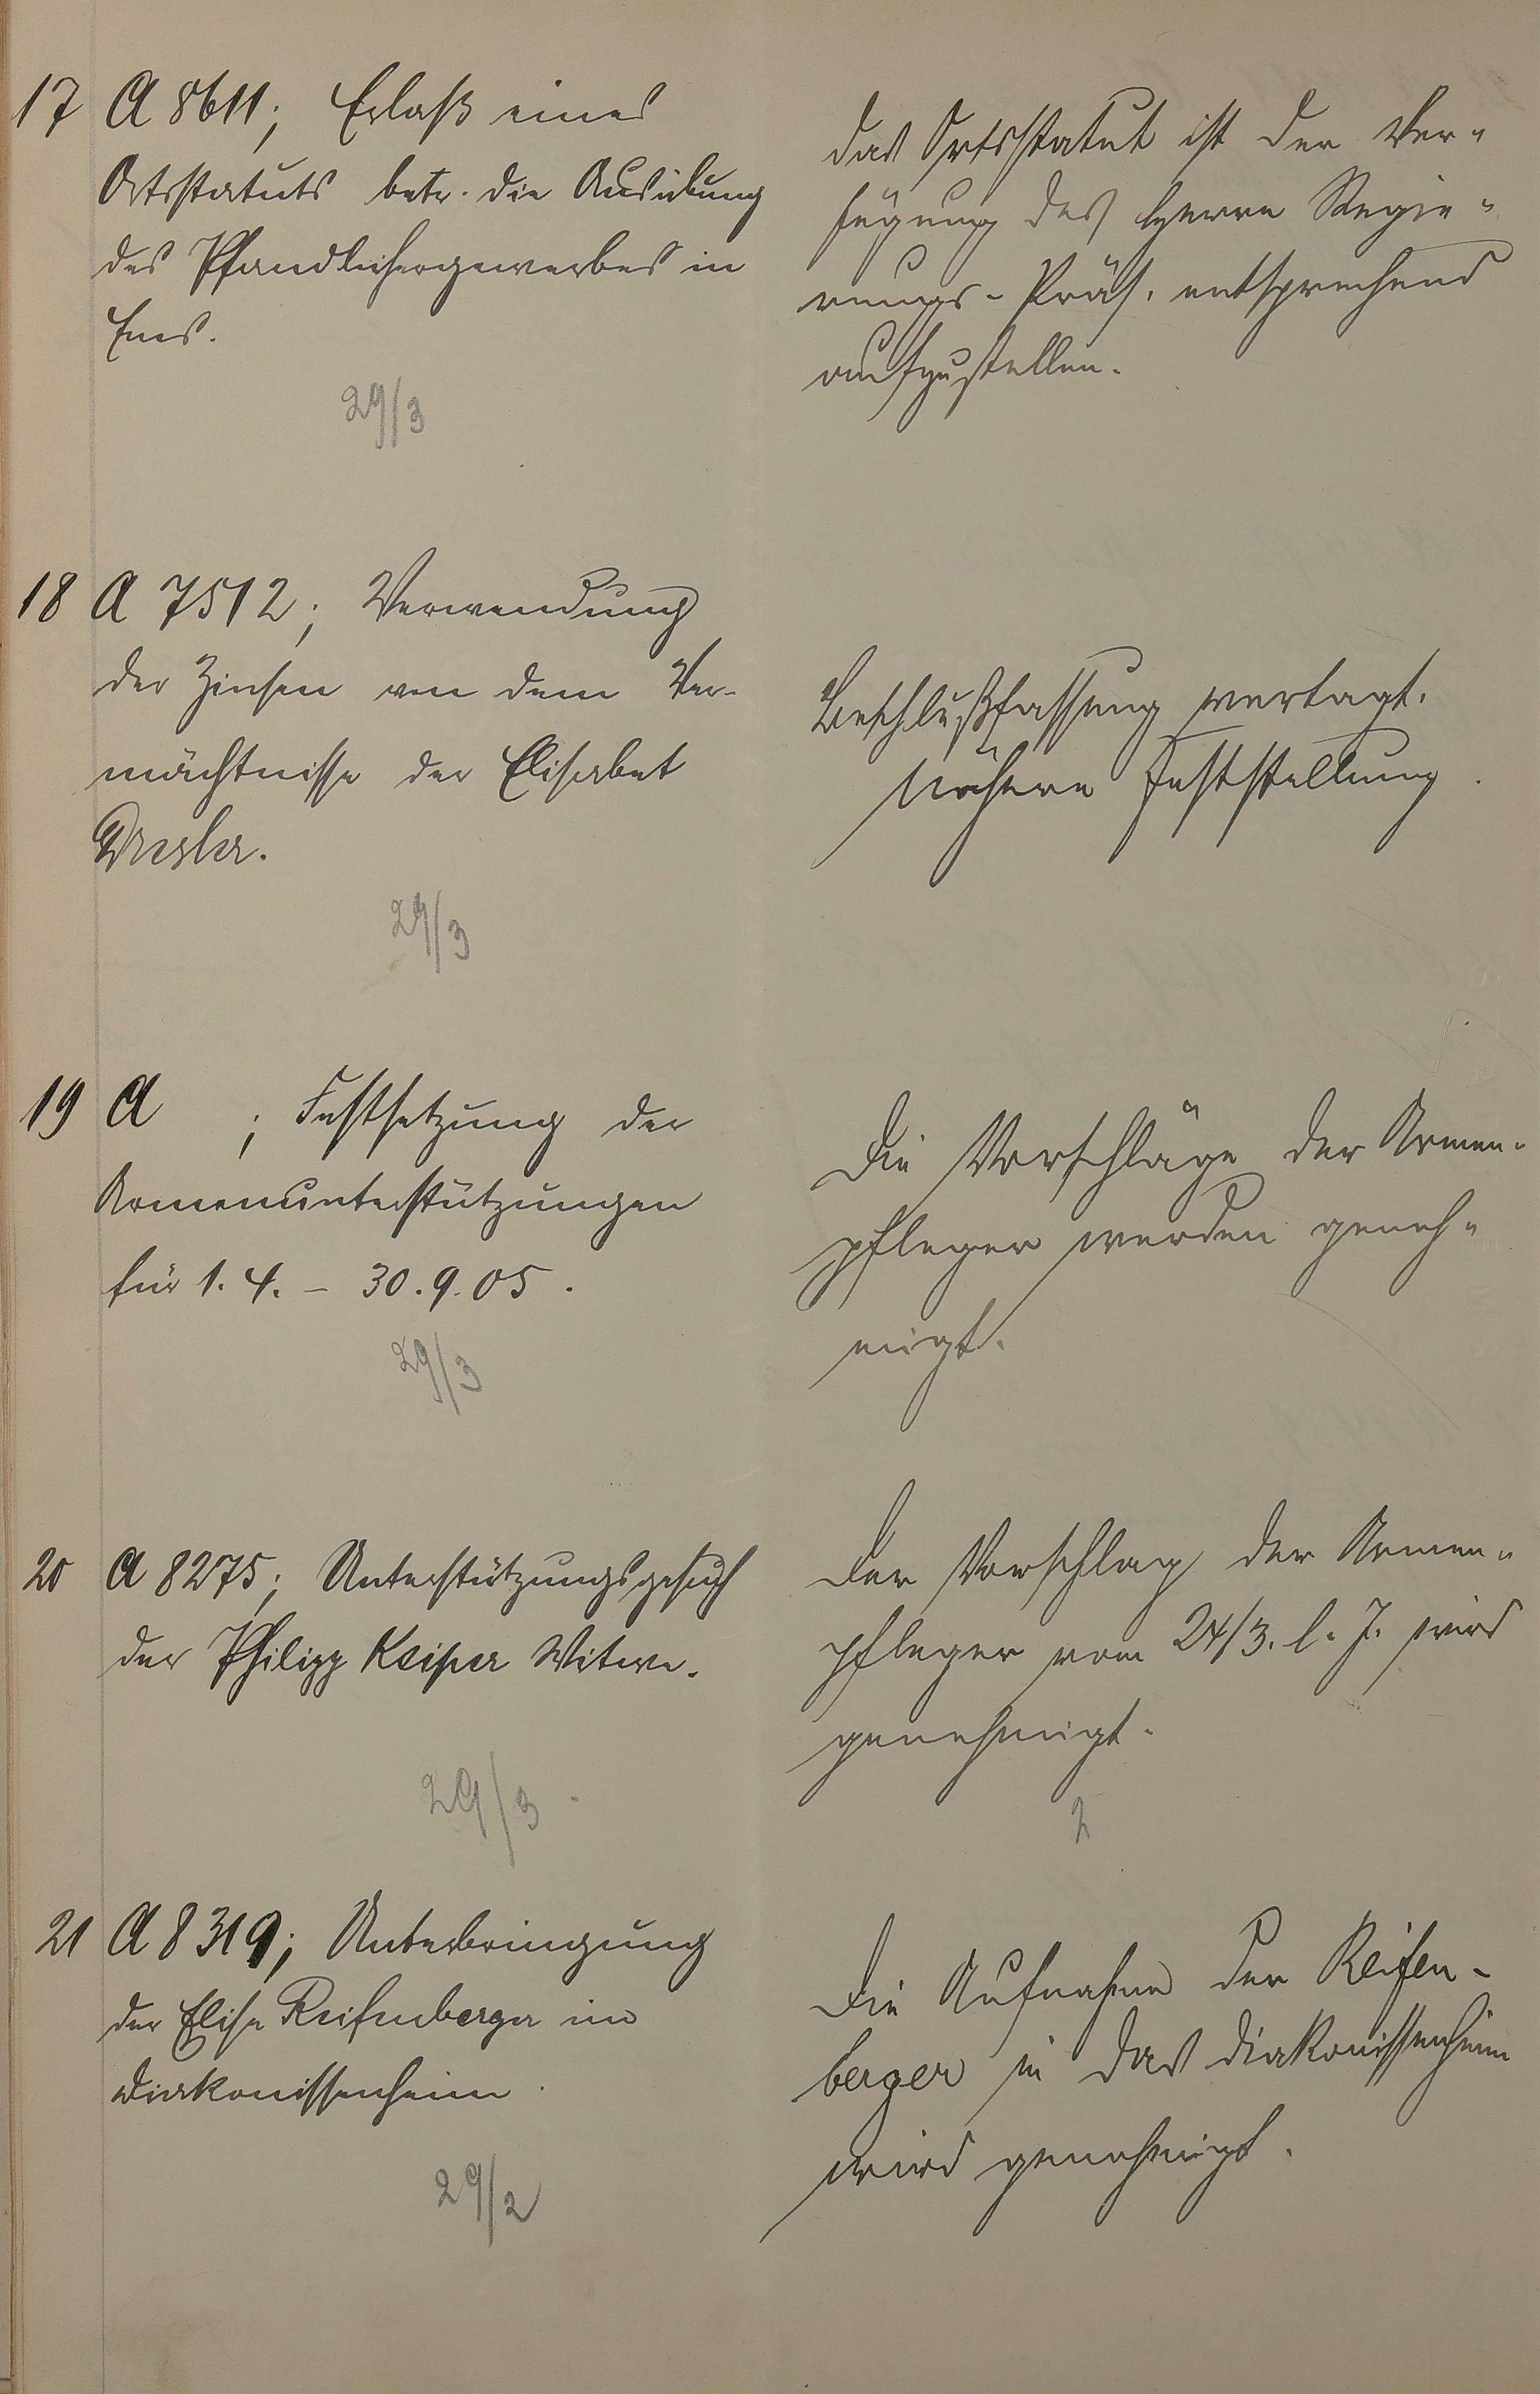 17 A 8611; Erlaß eines
Ortsstatuts betr. die Ausübung
des Pfandleihergewerbes in
Ems.
29/3
Das Ortsstatut ist der Ver-
fügung des Herrn Regie-
rungs-Präs. entsprechend
aufzustellen.
18 A 7512; Verwendung
der Zinsen von dem Ver-
mächtnisse der Elisabet
29/3
Beschlußfassung vertagt.
Nähere Feststellung.
19 A ; Festsetzung der
Armenunterstützungen
für 1.4. – 30.9.05.
29/3
Die Vorschläge der Armen-
pfleger werden geneh-
migt.
20 A 8275; Unterstützungsgesuch
der Philipp Keiper Witwe.
29/3
Der Vorschlag der Armen-
pfleger vom 24/3. l. J. wird
genehmigt.
2
21 A 8319; Unterbringung
der Elise Reifenberger im
Diakonissenheim.
29/2
Die Aufnahme der Reifen-
berger in das Diakonissenheim
wird genehmigt.